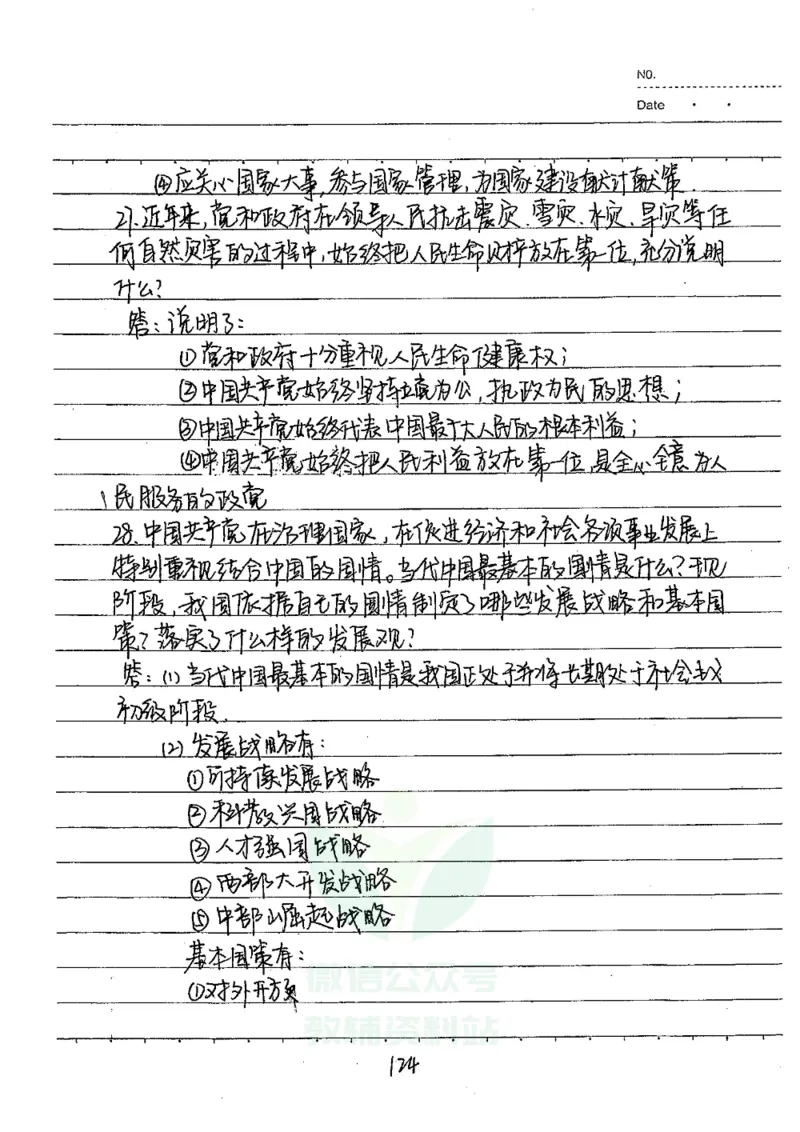 NO.
Date
④应关心国家大事,参与国家管理,为国家建设献计献策.
27.近年来,党和政府在领导人民抗击震灾、雪灾、水灾、旱灾等任
何自然灾害的过程中,始终把人民生命财产放在第一位,充分说明
什么?
答:说明了:
①党和政府十分重视人民生命健康权;
②中国共产党始终坚持立党为公,执政为民的思想;
③中国共产党始终代表中国最广大人民的根本利益;
④中国共产党始终把人民利益放在第一位,是全心全意为人
民服务的政党
28.中国共产党在治理国家,在促进经济和社会各项事业发展上
特别重视结合中国的国情。当代中国最基本的国情是什么?现
阶段,我国依据自己的国情制定了哪些发展战略和基本国
策?落实了什么样的发展观?
答:(1)当代中国最基本的国情是我国正处于并将长期处于社会主义
初级阶段.
(2)发展战略有:
①可持续发展战略
②科教兴国战略
③人才强国战略
④西部大开发战略
⑤中部崛起战略
基本国策有:
①对外开放
微信公众号
教辅资料站
124